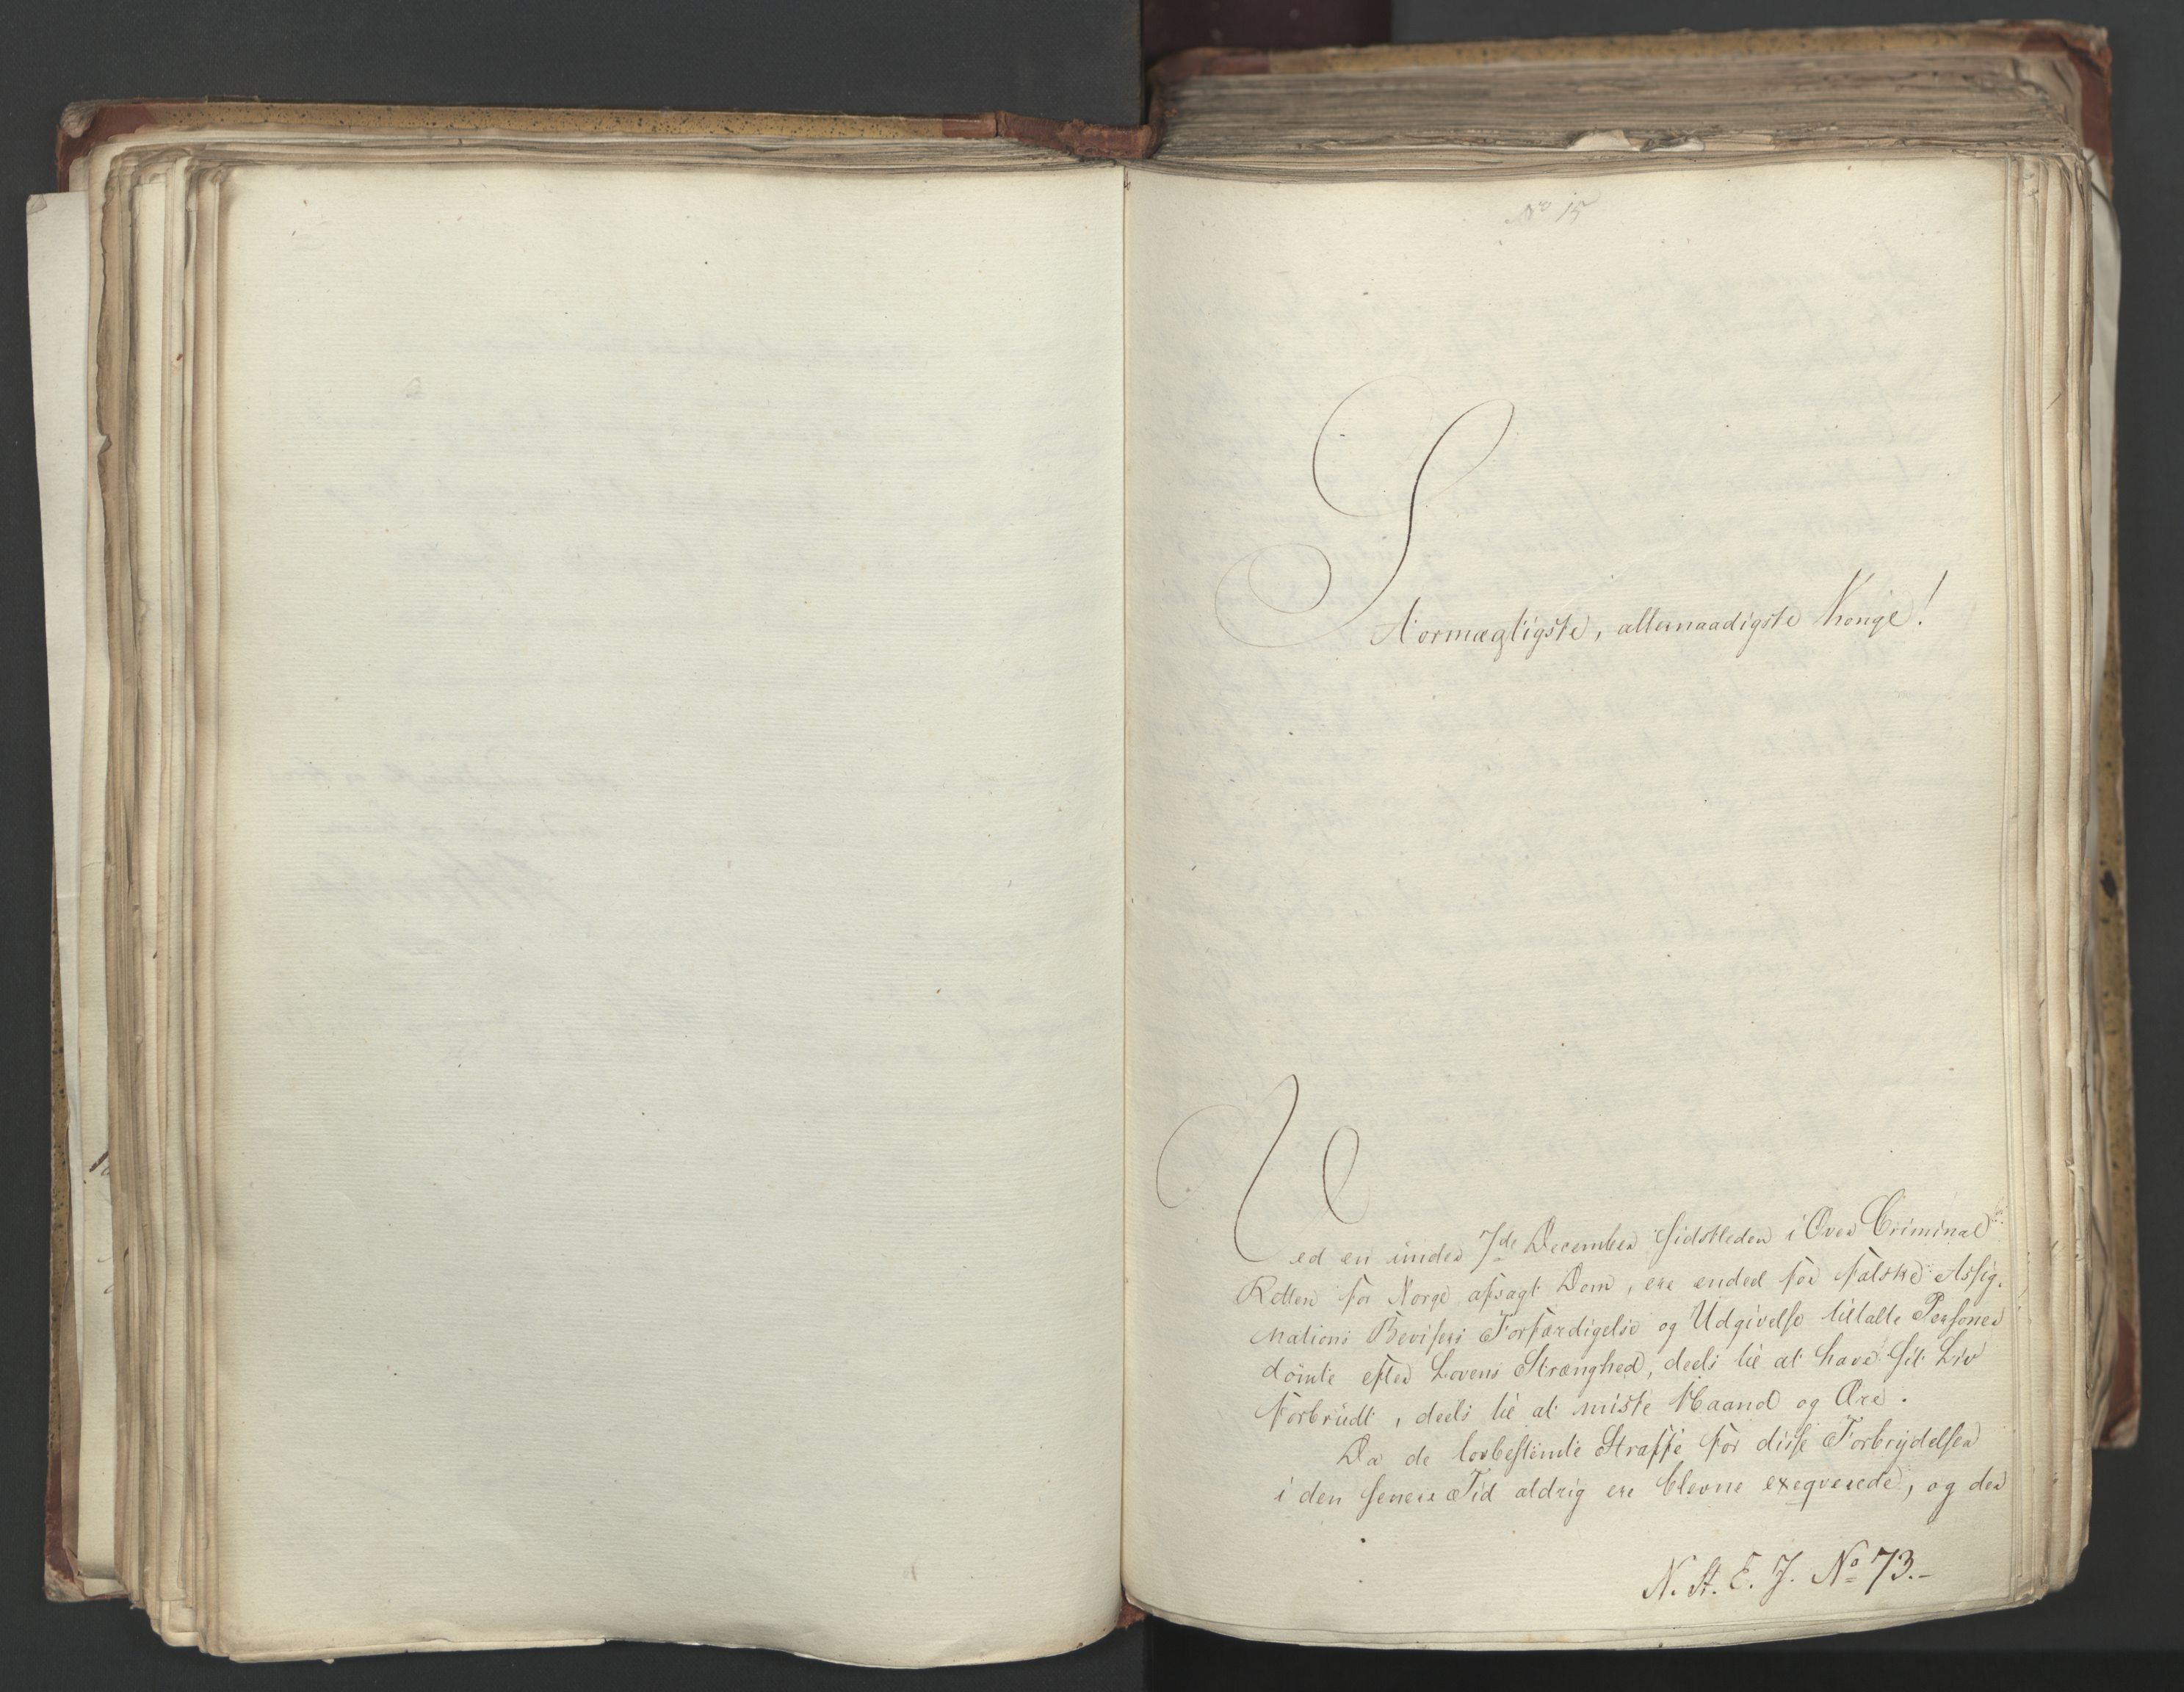 No 15
Stormægtigste, allernaadigste Konge!
Ved en under 7de December sidstleden i Over Criminal
Retten for Norge afsagt Dom, ere endeel for falske Assig-
nations Bevisers Forfærdigelse og Udgivelse tiltalte Personer
dömte efter Lovens Strænghed, deels til at have sit Liv
forbrudt, deels til at miste Haand og Ære.
Da de lovbestemte Straffe for disse Forbrydelser
i den senere Tid aldrig ere blevne exeqverede, og der
N. St. E. J. No 73.-